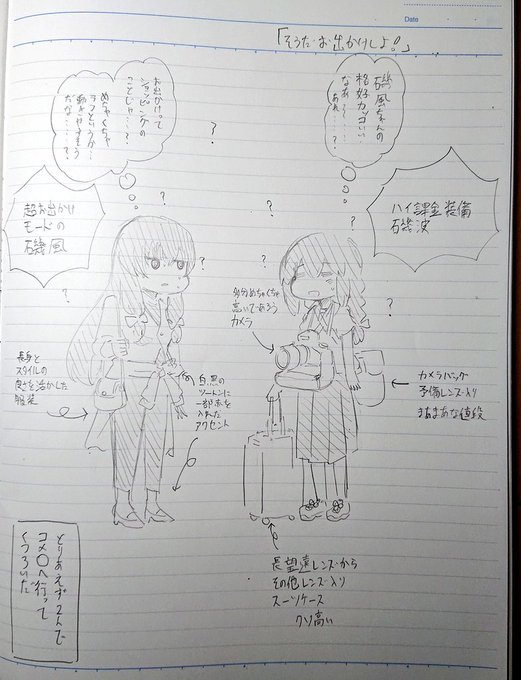 Date
「そうだ お出かけしよ!」
磯風ちゃんの
格好カッコいい
なあ・・・
あれ・・・?
お出かけって
ショッピングの
ことじゃ・・・?
めちゃくちゃ
ラフというか・・・
動きやすそう
だな・・・・・て?
ハイ課金装備
磯波
超お出かけ
モードの
磯風
多分めちゃくちゃ
高いであろう
カメラ
カメラバック
予備レンズ入り
まあまあな値段
長身と
スタイルの
良さを活かした
服装
白黒の
ツートンに
一部赤を
入れた
アクセント
長望遠レンズから
その他レンズ入り
スーツケース
クソ高い
とりあえず2人で
コメ〇へ行って
くつろいだ